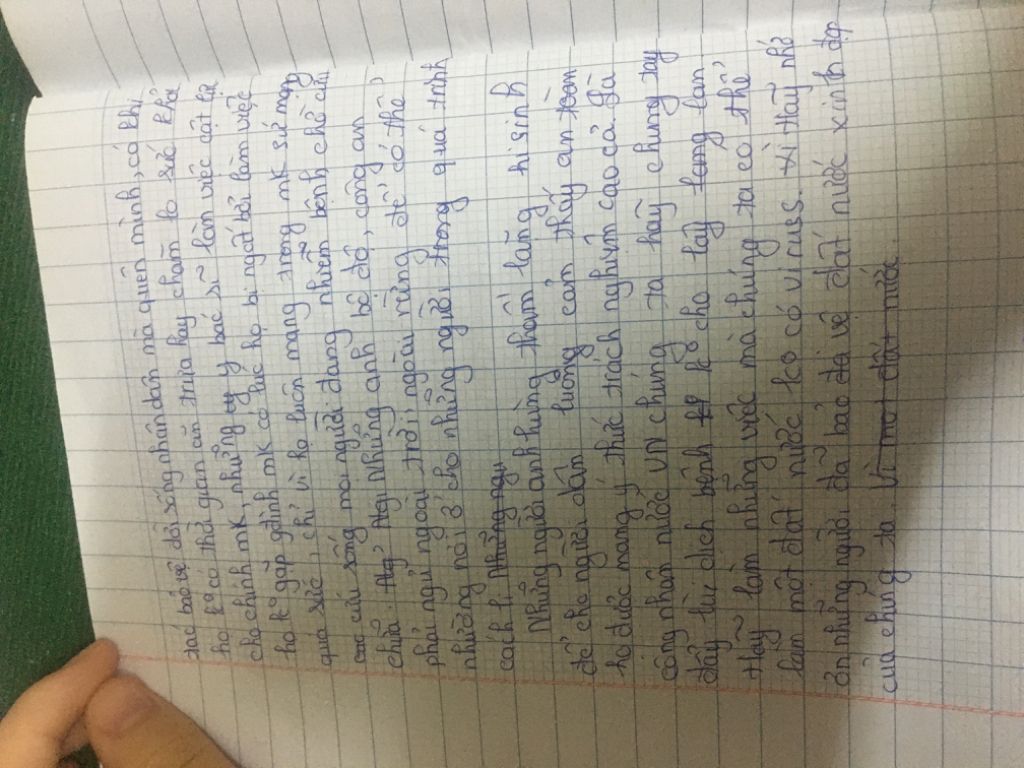 bảo vệ đời sống nhân dân mà quên mình, có khi
họ ko có thời gian ăn trưa hay chăm lo sức khỏ
cho chính mk, những y bác sĩ làm việc cật lực
họ ko gặp gđình mk có lúc họ bị ngất bởi làm việc
quá sức, chỉ vì họ luôn mang trong mk sứ mạng
cao cứu sống mọi người đang nhiễm bệnh chờ cứu
chữa. Những anh bộ đội, công an
phải ngủ ngoài trời ngoài rừng để có thể
nhường nơi ở cho những người trong quá trình
cách li. Những
Những người anh hùng thầm lặng hi sinh
để cho người dân luông cảm thấy an toàn
họ được mang ý thức trách nghiệm cao cả là
công nhân nước VN chúng ta hãy chung tay
đẩy lùi dịch bệnh ko cho lây lang lan
Hãy làm những việc mà chúng ta có thể
làm một đất nước ko có viruss. Hãy nhớ
ơn những người đã bảo vệ đất nước xinh đẹp
của chúng ta. Vì một đất nước.